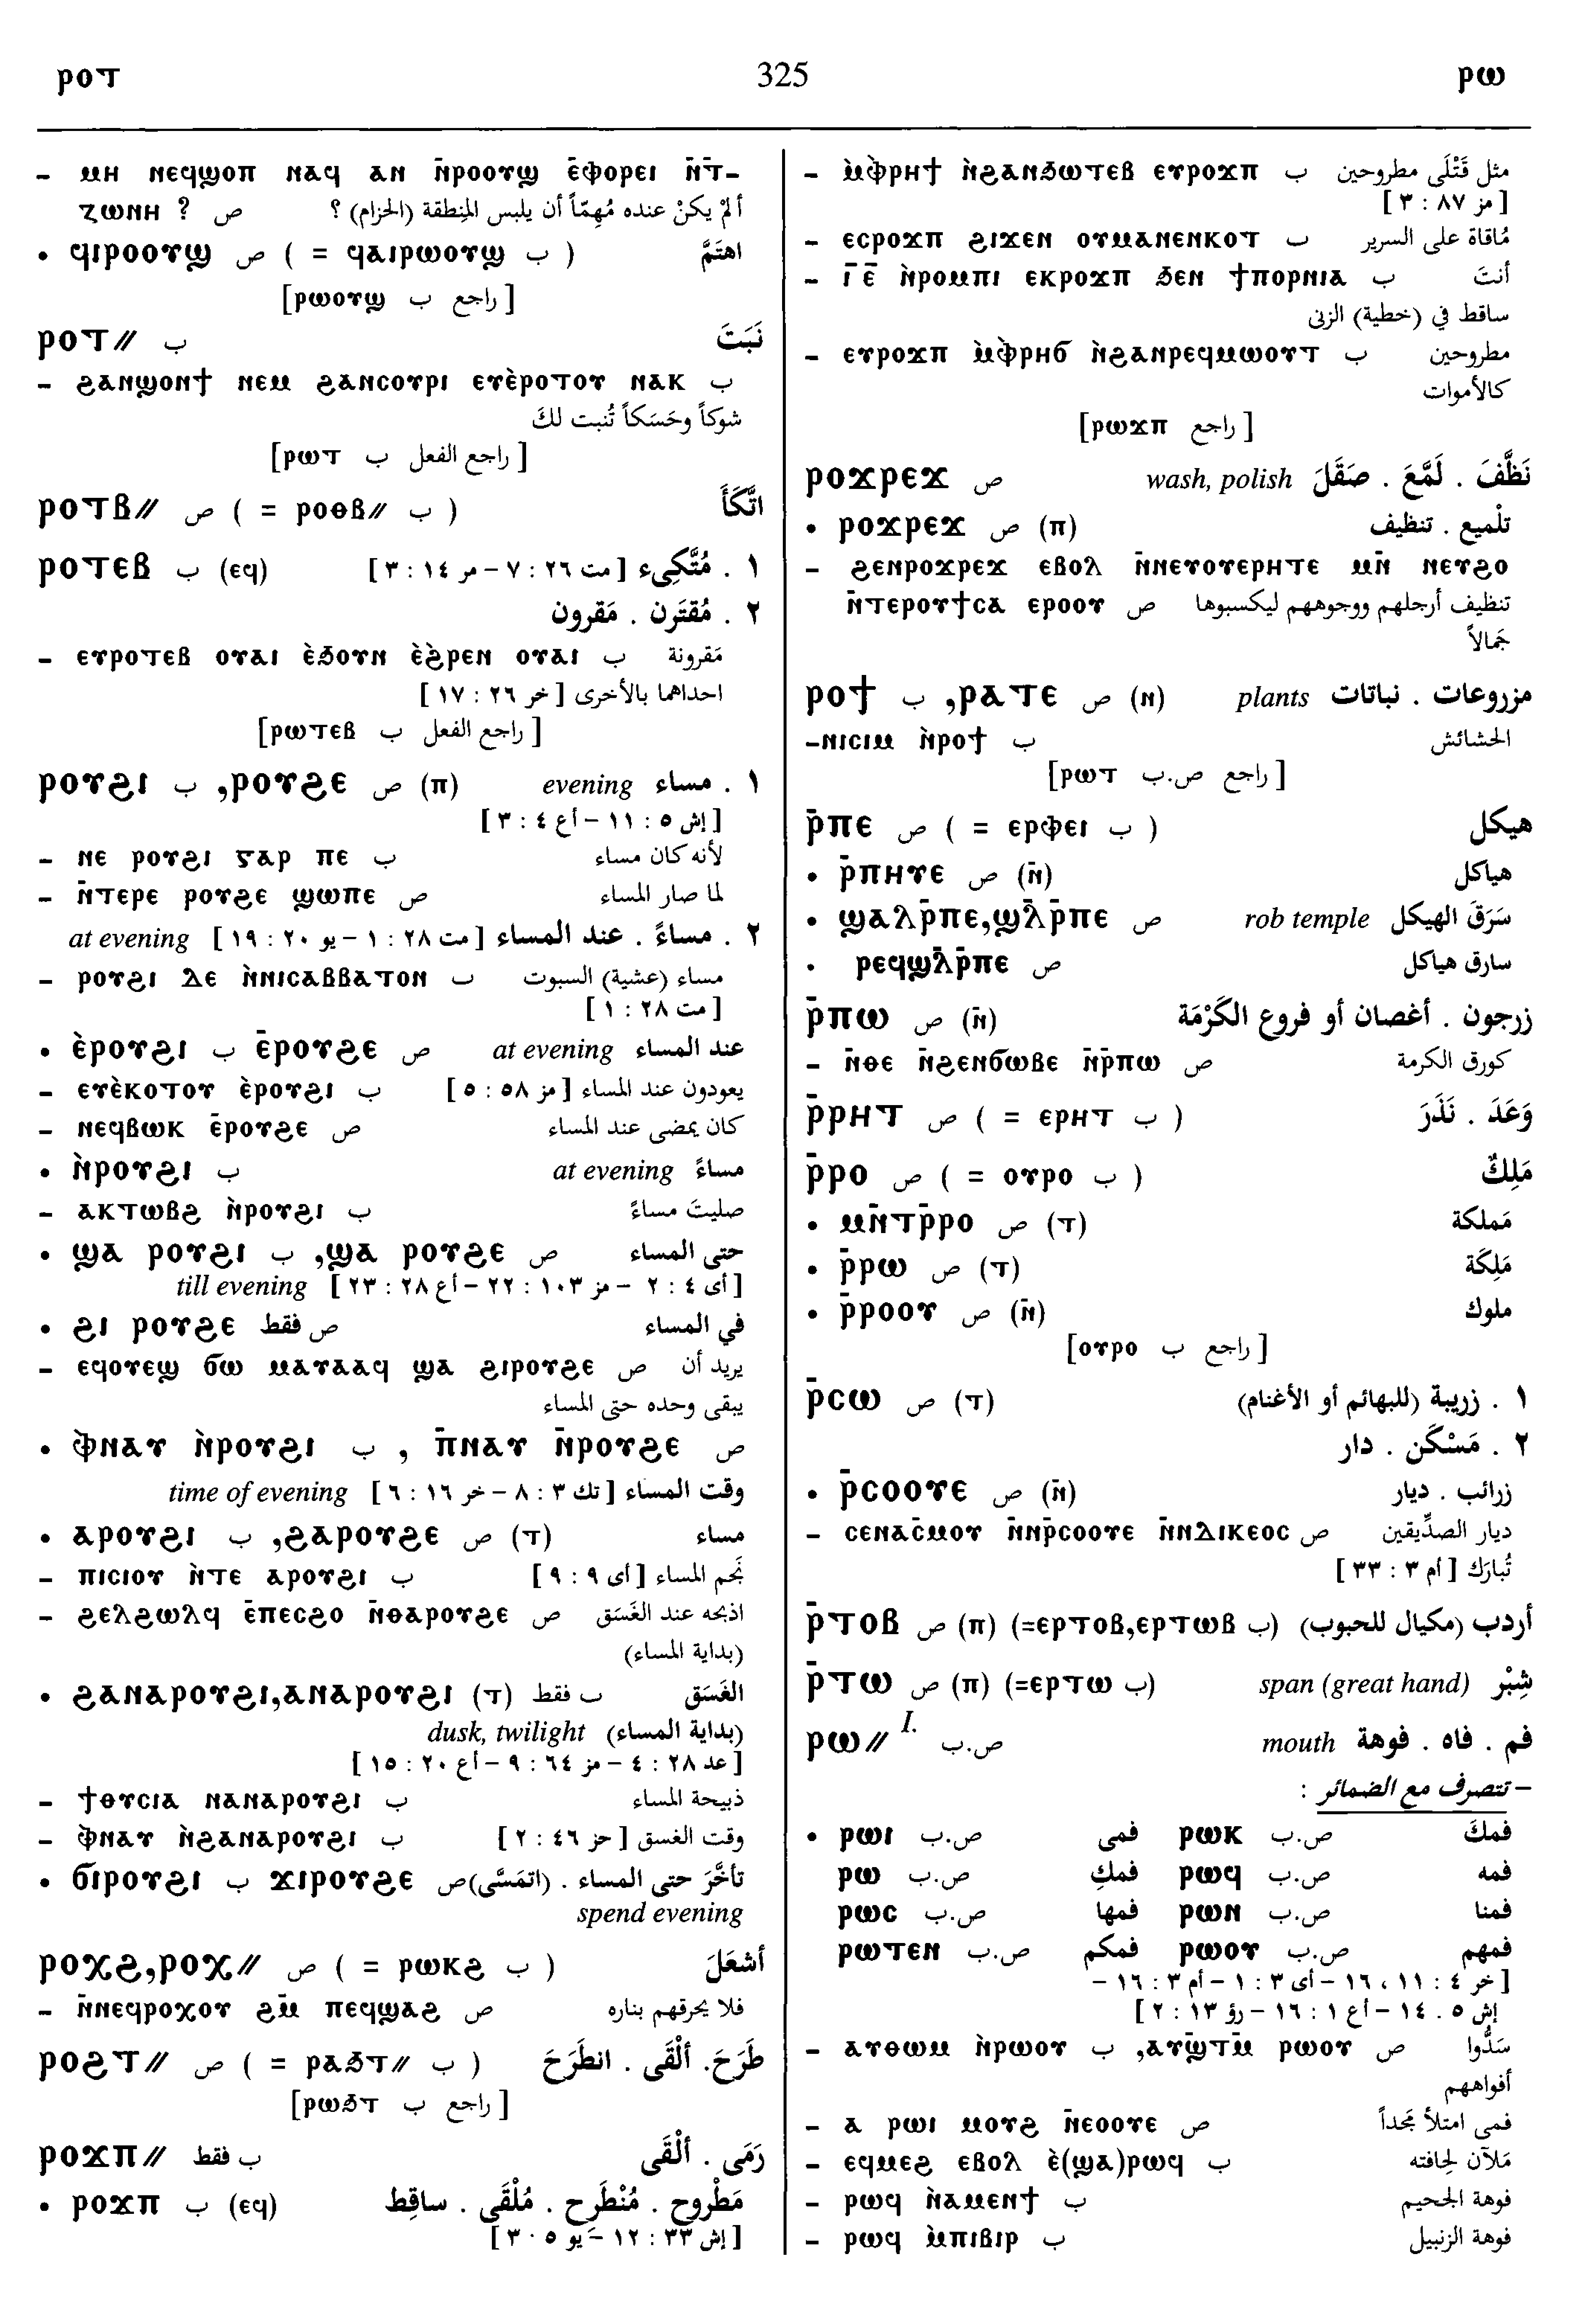 ⲣⲟⲧ 325 ⲣⲱ
– ⲙⲏ ⲛⲉϥϣⲟⲡ ⲛⲁϥ ⲁⲛ ⲛ̄ⲣⲟⲟⲩϣ ⲉ̄ⲫⲟⲣⲉⲓ ⲛ̄ⲧ̄–
ⲍⲱⲛⲏ ? ص ألمْ يكنْ عنده مُهِمّاً أن يلبس المِنطقة (الحزام) ؟
• ϥⲓⲣⲟⲟⲩϣ ص ( = ϥⲁⲓⲣⲱⲟⲩϣ ب ) اهتَمَّ
[ⲣⲱⲟⲩϣ راجع ب]
ⲣⲟⲧ// ب نَبَتَ
– ϩⲁⲛϣⲟⲛϯ ⲛⲉⲙ ϩⲁⲛⲥⲟⲩⲣⲓ ⲉⲩⲉ̀ⲣⲟⲧⲟⲩ ⲛⲁⲕ ب
شوكاً وحَسَكاً تُنبت لكَ
[ⲣⲱⲧ راجع الفعل ب]
ⲣⲟⲧⲃ// ص ( = ⲣⲟⲑⲃ// ب ) اتَّكَأَ
ⲣⲟⲧⲉⲃ ب (ⲉϥ) ١ . مُتَّكِىء [مت ٢٦ : ٧ – مر ١٤ : ٣]
٢ . مُقتَرن . مَقرون
– ⲉⲩⲣⲟⲧⲉⲃ ⲟⲩⲁⲓ ⲉ̀ϧⲟⲩⲛ ⲉ̀ϩⲣⲉⲛ ⲟⲩⲁⲓ ب مَقرونة
احداهما بالأخرى [خر ٢٦ : ١٧]
[ⲣⲱⲧⲉⲃ راجع الفعل ب]
ⲣⲟⲩϩⲓ ب ,ⲣⲟⲩϩⲉ ص (ⲡ) ١ . مساء evening
[إش ٥ : ١١ – أع ٤ : ٣]
– ⲛⲉ ⲣⲟⲩϩⲓ ⲅⲁⲣ ⲡⲉ ب لأنه كان مساء
– ⲛ̄ⲧⲉⲣⲉ ⲣⲟⲩϩⲉ ϣⲱⲡⲉ ص لما صار المساء
٢ . مساءً . عند المساء [مت ٢٨ : ١ – يو ٢٠ : ١٩] at evening
– ⲣⲟⲩϩⲓ ⲇⲉ ⲛ̀ⲛⲓⲥⲁⲃⲃⲁⲧⲟⲛ ب مساء (عشية) السبوت
[مت ٢٨ : ١]
• ⲉ̀ⲣⲟⲩϩⲓ ب ⲉ̄ⲣⲟⲩϩⲉ ص عند المساء at evening
– ⲉⲩⲉ̀ⲕⲟⲧⲟⲩ ⲉ̀ⲣⲟⲩϩⲓ ب يعودون عند المساء [مز ٥٨ : ٥]
– ⲛⲉϥⲃⲱⲕ ⲉ̄ⲣⲟⲩϩⲉ ص كان يمضى عند المساء
• ⲛ̀ⲣⲟⲩϩⲓ ب مساءً at evening
– ⲁⲕⲧⲱⲃϩ ⲛ̀ⲣⲟⲩϩⲓ ب صليتَ مساءً
• ϣⲁ ⲣⲟⲩϩⲓ ب ,ϣⲁ ⲣⲟⲩϩⲉ ص حتى المساء
[أى ٤ : ٢ – مز ١٠٣ : ٢٢ – أع ٢٨ : ٢٣] till evening
• ϩⲓ ⲣⲟⲩϩⲉ ص فقط في المساء
– ⲉϥⲟⲩⲉϣ ϭⲱ ⲙⲁⲩⲁⲁϥ ϣⲁ ϩⲓⲣⲟⲩϩⲉ ص يريد أن
يبقى وحده حتى المساء
• ⲫ̀ⲛⲁⲩ ⲛ̀ⲣⲟⲩϩⲓ ب , ⲡ̄ⲛⲁⲩ ⲛ̄ⲣⲟⲩϩⲉ ص
وقت المساء [تك ٣ : ٨ – خر ١٦ : ٦] time of evening
• ⲁⲣⲟⲩϩⲓ ب ,ϩⲁⲣⲟⲩϩⲉ ص (ⲧ) مساء
– ⲡⲓⲥⲓⲟⲩ ⲛ̀ⲧⲉ ⲁⲣⲟⲩϩⲓ ب نَجم المساء [أى ٩ : ٩]
– ϩⲉⲗϩⲱⲗϥ ⲉ̄ⲡⲉⲥϩⲟ ⲛ̄ⲑⲁⲣⲟⲩϩⲉ ص اذبحه عند الغَسَق
(بداية المساء)
• ϩⲁⲛⲁⲣⲟⲩϩⲓ,ⲁⲛⲁⲣⲟⲩϩⲓ (ⲧ) ب فقط الغَسَق
(بداية المساء) dusk, twilight
[عد ٢٨ : ٤ – مز ٦٤ : ٩ – أع ٢٠ : ١٥]
– ϯⲑⲩⲥⲓⲁ ⲛⲁⲛⲁⲣⲟⲩϩⲓ ب ذبيحة المساء
– ⲫ̀ⲛⲁⲩ ⲛ̀ϩⲁⲛⲁⲣⲟⲩϩⲓ ب وقت الغسق [حز ٤٦ : ٢]
• ϭⲓⲣⲟⲩϩⲓ ب ϫⲓⲣⲟⲩϩⲉ ص تأخَّرَ حتى المساء . (اتمَسَّى)
spend evening
ⲣⲟⲭϩ,ⲣⲟⲭ// ص ( = ⲣⲱⲕϩ ب ) أشعَلَ
– ⲛ̄ⲛⲉϥⲣⲟⲭⲟⲩ ϩⲙ̄ ⲡⲉϥϣⲁϩ ص فلا يحرقهم بناره
ⲣⲟϩⲧ// ص ( = ⲣⲁϧⲧ// ب ) طَرَحَ. ألْقَى . انطَرَحَ
[ⲣⲱϧⲧ راجع ب]
ⲣⲟϫⲡ// ب فقط رَمَى . ألْقَى
• ⲣⲟϫⲡ ب (ⲉϥ) مَطْروح . مُنْطَرِح . مُلْقَى . ساقِط
[إش ٣٣ : ١٢ – يو ٥ : ٣]
– ⲙ̀ⲫ̀ⲣⲏϯ ⲛ̀ϩⲁⲛϧⲱⲧⲉⲃ ⲉⲩⲣⲟϫⲡ ب مثل قَتْلَى مطروحين
[مز ٨٧ : ٣]
– ⲉⲥⲣⲟϫⲡ ϩⲓϫⲉⲛ ⲟⲩⲙⲁⲛⲉⲛⲕⲟⲧ ب مُلقاة على السرير
– ⲓ̄ⲉ̄ ⲛ̀ⲣⲟⲙⲡⲓ ⲉⲕⲣⲟϫⲡ ϧⲉⲛ ϯⲡⲟⲣⲛⲓⲁ ب أنتَ
ساقط في (خطية) الزنى
– ⲉⲩⲣⲟϫⲡ ⲙ̀ⲫ̀ⲣⲏϭ ⲛ̀ϩⲁⲛⲣⲉϥⲙⲱⲟⲩⲧ ب مطروحين
كالأموات
[ⲣⲱϫⲡ راجع]
ⲣⲟϫⲣⲉϫ ص نَظَّفَ . لَمَّعَ . صَقَلَ wash, polish
• ⲣⲟϫⲣⲉϫ ص (ⲡ) تلْميع . تنظيف
– ϩⲉⲛⲣⲟϫⲣⲉϫ ⲉⲃⲟⲗ ⲛ̄ⲛⲉⲩⲟⲩⲉⲣⲏⲧⲉ ⲙⲛ̄ ⲛⲉⲩϩⲟ
ⲛ̄ⲧⲉⲣⲟⲩϯⲥⲁ ⲉⲣⲟⲟⲩ ص تنظيف أرجلهم ووجوههم ليكسبوها
جمالاً
ⲣⲟϯ ب ,ⲣⲁⲧⲉ ص (ⲛ) مزروعات . نباتات plants
–ⲛⲓⲥⲓⲙ ⲛ̀ⲣⲟϯ ب الحشائش
[ⲣⲱⲧ راجع ص.ب]
ⲣ̄ⲡⲉ ص ( = ⲉⲣⲫⲉⲓ ب ) هيكل
• ⲣ̄ⲡⲏⲩⲉ ص (ⲛ̄) هياكل
• ϣⲁⲗⲣ̄ⲡⲉ,ϣⲗ̄ⲣ̄ⲡⲉ ص سَرَقَ الهيكل rob temple
• ⲣⲉϥϣⲗ̄ⲣ̄ⲡⲉ ص سارق هياكل
ⲣ̄ⲡⲱ ص (ⲛ̄) زرجون . أغصان أو فروع الكَرْمَة
– ⲛ̄ⲑⲉ ⲛ̄ϩⲉⲛϭⲱⲃⲉ ⲛ̄ⲣ̄ⲡⲱ ص كورق الكرمة
ⲣ̄ⲣⲏⲧ ص ( = ⲉⲣⲏⲧ ب ) وَعَدَ . نَذَرَ
ⲣ̄ⲣⲟ ص ( = ⲟⲩⲣⲟ ب ) مَلِكٌ
• ⲙⲛ̄ⲧⲣ̄ⲣⲟ ص (ⲧ) مَملكة
• ⲣ̄ⲣⲱ ص (ⲧ) مَلِكَة
• ⲣ̄ⲣⲟⲟⲩ ص (ⲛ̄) ملوك
[ⲟⲩⲣⲟ راجع ب]
ⲣ̄ⲥⲱ ص (ⲧ) ١ . زريبة (للبهائم أو الأغنام)
٢ . مَسْكَن . دار
• ⲣ̄ⲥⲟⲟⲩⲉ ص (ⲛ̄) زرائب . ديار
– ⲥⲉⲛⲁⲥ̄ⲙⲟⲩ ⲛ̄ⲛⲣ̄ⲥⲟⲟⲩⲉ ⲛ̄ⲛⲇⲓⲕⲉⲟⲥ ص ديار الصدِّيقين
تُبارَك [أم ٣ : ٣٣]
ⲣ̄ⲧⲟⲃ ص (ⲡ) (=ⲉⲣⲧⲟⲃ,ⲉⲣⲧⲱⲃ ب) أردب (مكيال للحبوب)
ⲣ̄ⲧⲱ ص (ⲡ) (=ⲉⲣⲧⲱ ب) شِبْر span (great hand)
ⲣⲱ// I. ص.ب فم . فاه . فوهة mouth
– تتصرف مع الضمائر :
• ⲣⲱⲓ ص.ب فمى ⲣⲱⲕ ص.ب فمكَ
ⲣⲱ ص.ب فمكِ ⲣⲱϥ ص.ب فمه
ⲣⲱⲥ ص.ب فمها ⲣⲱⲛ ص.ب فمنا
ⲣⲱⲧⲉⲛ ص.ب فمكم ⲣⲱⲟⲩ ص.ب فمهم
[خر ٤ : ١١ ، ١٦ – أى ٣ : ١ – أم ٣ : ١٦ –
إش ٥ . ١٤ – أع ١ : ١٦ – رؤ ١٣ : ٢]
– ⲁⲩⲑⲱⲙ ⲛ̀ⲣⲱⲟⲩ ب ,ⲁⲩϣ̄ⲧⲙ̄ ⲣⲱⲟⲩ ص سَدُّوا
أفواههم
– ⲁ ⲣⲱⲓ ⲙⲟⲩϩ ⲛ̄ⲉⲟⲟⲩⲉ ص فمى امتلأ مجداً
– ⲉϥⲙⲉϩ ⲉⲃⲟⲗ ⲉ̀(ϣⲁ)ⲣⲱϥ ب مَلآن لحافته
– ⲣⲱϥ ⲛ̀ⲁⲙⲉⲛϯ ب فوهة الجحيم
– ⲣⲱϥ ⲙ̀ⲡⲓⲃⲓⲣ ب فوهة الزنبيل